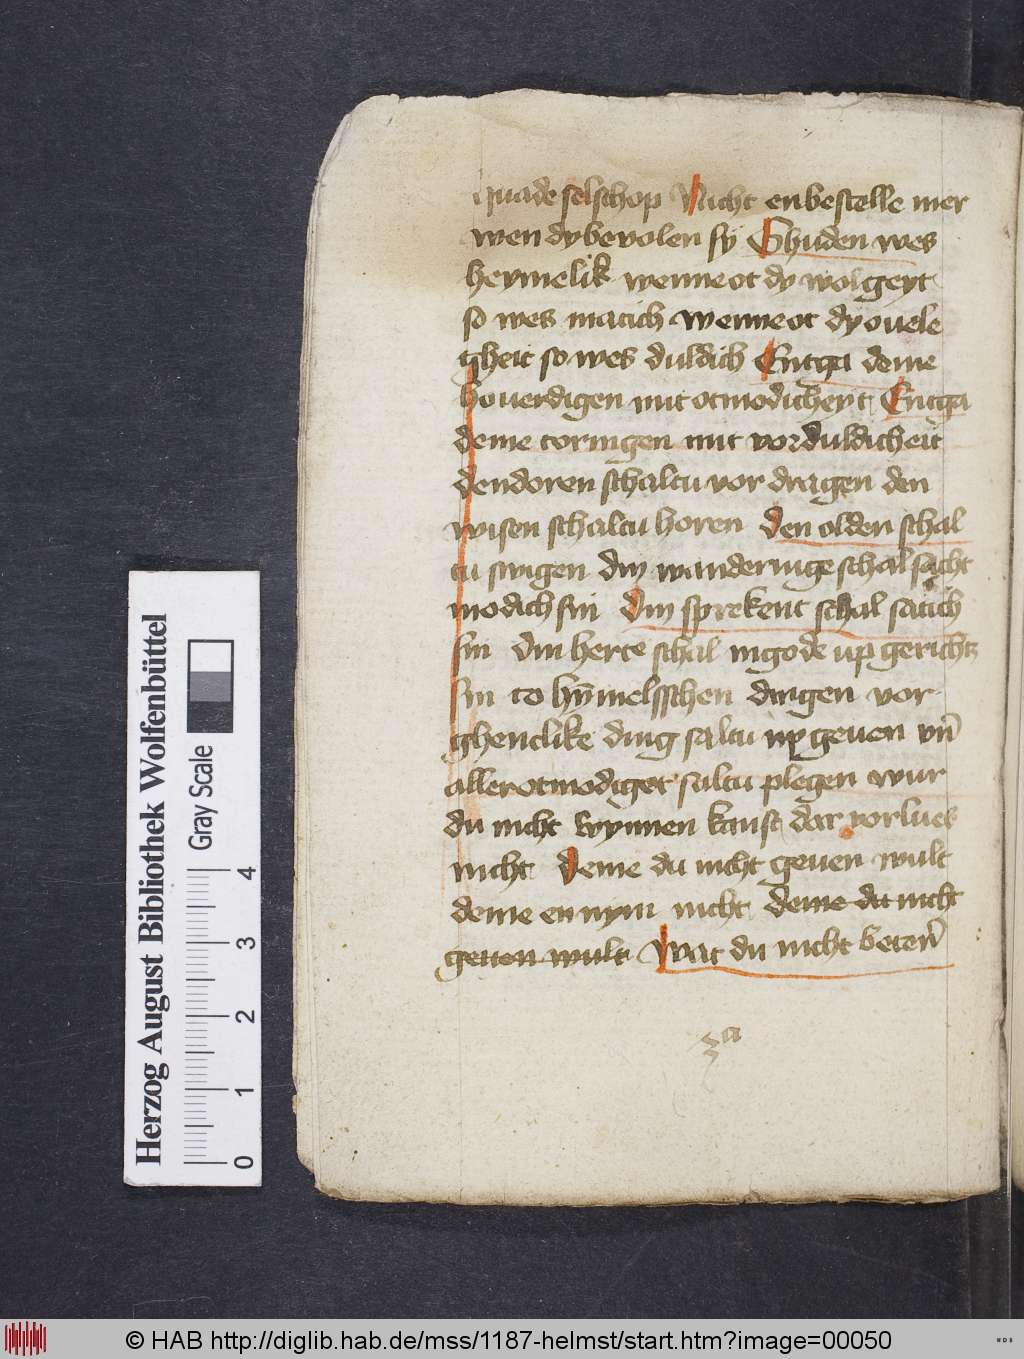 quade selschop Nicht enbestelle mer
wen dy bevolen sy Ghuden wes
heymelik wenne ot dy wol geyt
so wes matich wenne ot dy ouele
gheit so wes duldich Entga deme
houerdigen mit otmodicheyt Entga
deme torningen mit vorduldicheit
den doren schaltu vor dragen den
wisen schaltu horen den olden schal
tu swigen din wanderinge schal sacht
modich sin din sprekent schal satich
sin din herte schal in gode up gericht
sin to hymelsschen dingen vor
ghenclike ding saltu up geuen vn̄
aller otmodiget saltu plegen wur
du nicht wynnen kanst dar vorlues
nicht deme du nicht geuen wult
deme en nym nicht deme du nicht
geuen wult Wat du nicht beterñ
Herzog August Bibliothek Wolfenbüttel
Gray Scale
0 1 2 3 4
© HAB http://diglib.hab.de/mss/1187-helmst/start.htm?image=00050